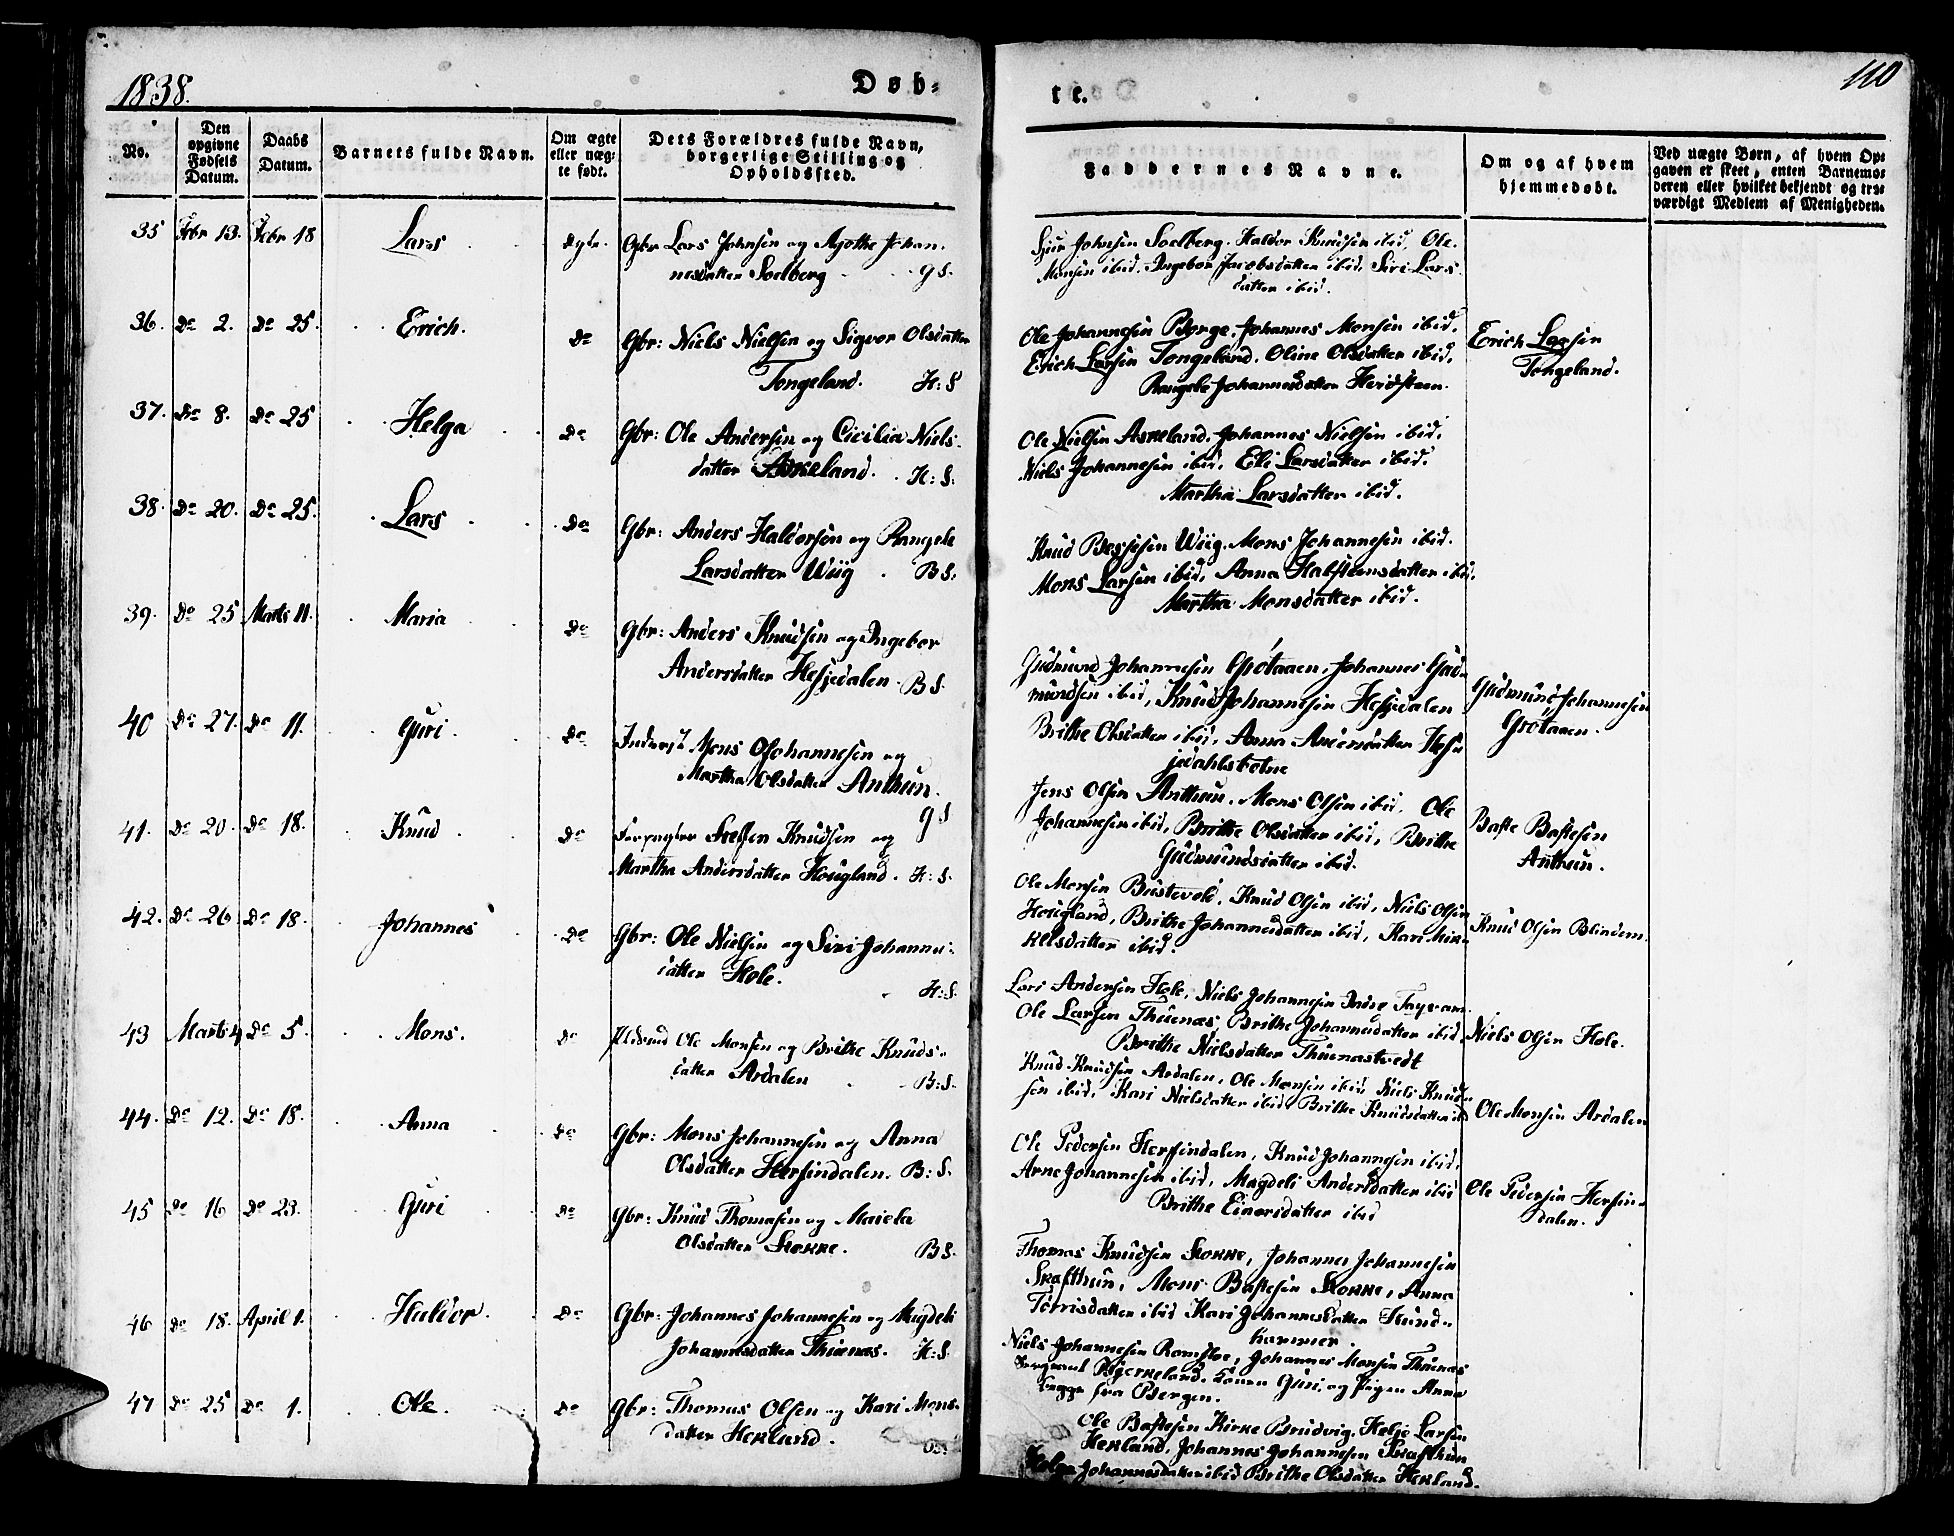 1838.
Døb-
te.
110
No.
Den opgivne Fødsels Datum.
Daabs Datum.
Barnets fulde Navn.
Om ægte eller uægte født.
Dets Forældres fulde Navn, borgerlige Stilling og Opholdssted.
Faddernes Navne.
Om og af hvem hjemmedøbt.
Ved uægte Børn, af hvem Opgaven er skeet, enten Barnemoderen eller hvilket bekjendt og troværdigt Medlem af Menigheden.
35 Febr 13. Febr 18 Lars
Gbr Lars Johnsen og Agothe Johan-
nesdatter Soelberg G S.
Sjur Johnsen Soelberg. Haldor Knudsen ibid. Ole
Monsen ibid. Ingebor Jacobsdatter ibid. Siri Lars
datter ibid.
36. Do 2. Do 25. Erich. Do
Gbr: Niels Nielsen og Sigvor Olsdatter
Tongeland. H: S
Ole Johannesen Borge. Johannes Monsen ibid.
Erich Larsen Tongeland. Oline Olsdatter ibid.
Rangele Johannesdatter Hvidsteen.
Erich Larsen
Tongeland.
37. Do 8. Do 25 Helga Do
Gbr: Ole Andersen og Cicilia Niels
datter Askeland. H: S.
Ole Nielsen Askeland. Johannes Nielsen ibid.
Niels Johannesen ibid. Eli Larsdatter ibid.
Martha Larsdatter ibid.
38. Do 20. Do 25. Lars Do
Gbr: Anders Haldorsen og Rangele
Larsdatter Wiig B S:
Knud Wiig. Mons Johannesen ibid.
Mons Larsen ibid, Anna Halsteensdatter ibid,
Martha Monsdatter ibid.
39. Do 25 Marts 11. Maria Do
Gbr: Anders Knudsen og Ingebor
Andersdatter Hesjedalen. B S.
Gudmund Johannesen Grøtaaen, Johannes Gud-
mundsen ibid, Knud Johannesen Hesjedalen
Brithe Olsdatter ibid, Anna Andersdatter Hes-
jedahlstølne
Gudmund Johannesen
Grøtaaen.
40 Do 27. Do 11. Guri. Do
Inderst Mons Johannesen og
Martha Olsdatter Anthun. G S
Jens Olsen Anthun. Mons Olsen ibid. Ole
Johannesen ibid, Brithe Olsdatter ibid, Brithe
Gudmundsdatter ibid.
Baste Bastesen
Anthun.
41. Do 20. Do 18. Knud Do
Steffen Knudsen og
Martha Andersdatter Hougland. H: S.
Ole Monsen Bustevold, Knud Olsen ibid, Niels Olsen
Hougland, Brithe Johannesdatter ibid, Kari Mik-
kelsdatter ibid.
Knud Olsen Blindem.
42. Do 26 Do 18. Johannes Do
Gbr: Ole Nielsen og Siri Johannes-
datter Hole. H: S.
Lars Andersen Hole, Niels Johannesen Indre
Ole Larsen Thuenæs, Brithe Johannesdatter ibid.
Brithe Nielsdatter Thuenastvedt
Niels Olsen Hole.
43 Marts 4 Do 5. Mons. Do
Ole Monsen og Brithe Knuds-
datter Ardalen B: S.
Knud Knudsen Ardalen, Ole Monsen ibid, Niels Knud-
sen ibid. Kari Nielsdatter ibid, Brithe Knudsdatter ibd
Ole Monsen Ardalen
44. Do 12. Do 18. Anna Do
Gbr: Mons Johannesen og Anna
Olsdatter Herfindalen. B: S.
Ole Pedersen Herfindalen, Knud Johannesen ibid,
Arne Johannesen ibid, Magdeli Andersdatter ibid
Brithe Einersdatter ibid
Ole Pedersen Herfin-
dalen.
45 Do 16 Do 23. Guri Do
Gbr: Knud Thomasen og Maiela
Olsdatter Stokke. B S.
Thomas Knudsen Stokke, Johannes Johannesen
Skafthun, Mons Bastesen Stokke, Anna
Torrisdatter ibid Kari Johannesdatter Hund-
hammer.
46 Do 18. April 1. Haldor. Do
Gbr: Johannes Johannesen og Magdeli
Johannesdatter Thuenæs. H: S.
Niels Johannesen Romsloe, Johannes Monsen Thuenæs
Sergeant Bjerkeland. Konen Guri, og Pigen Anna
begge fra Bergen.
47 Do 25 Do 1. Ole. Do
Gbr: Thomas Olsen og Kari Mons-
datter Herland.
Ole Bastesen Kirke Brudvig, Helje Larsen
Herland, Johannes Johannesen Skafthun
Helga Johannesdatter ibid Brithe Olsdatter Herland.